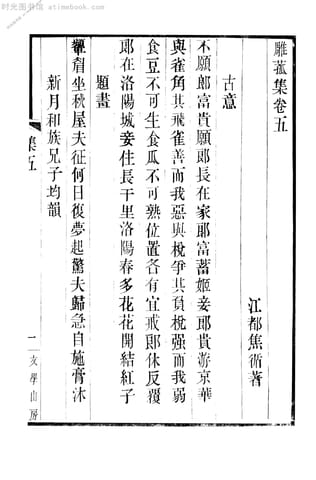 时光图书馆 atimebook.com
雕菰集卷五
江都焦循著
古意
不願郎富貴願郎長在家郎富蓄姬妾郎貴游京華
與雀角其飛雀善而我惡與梲爭其負梲强而我弱
食豆不可生食瓜不可熟位置各有宜戒郎休反覆
郎在洛陽城妾住長干里洛陽春多花花開結紅子
題畫
顰眉坐秋屋夫征何日復夢起驚夫歸急自施膏沐
新月和族兄子均韻
集五
一
文學山房